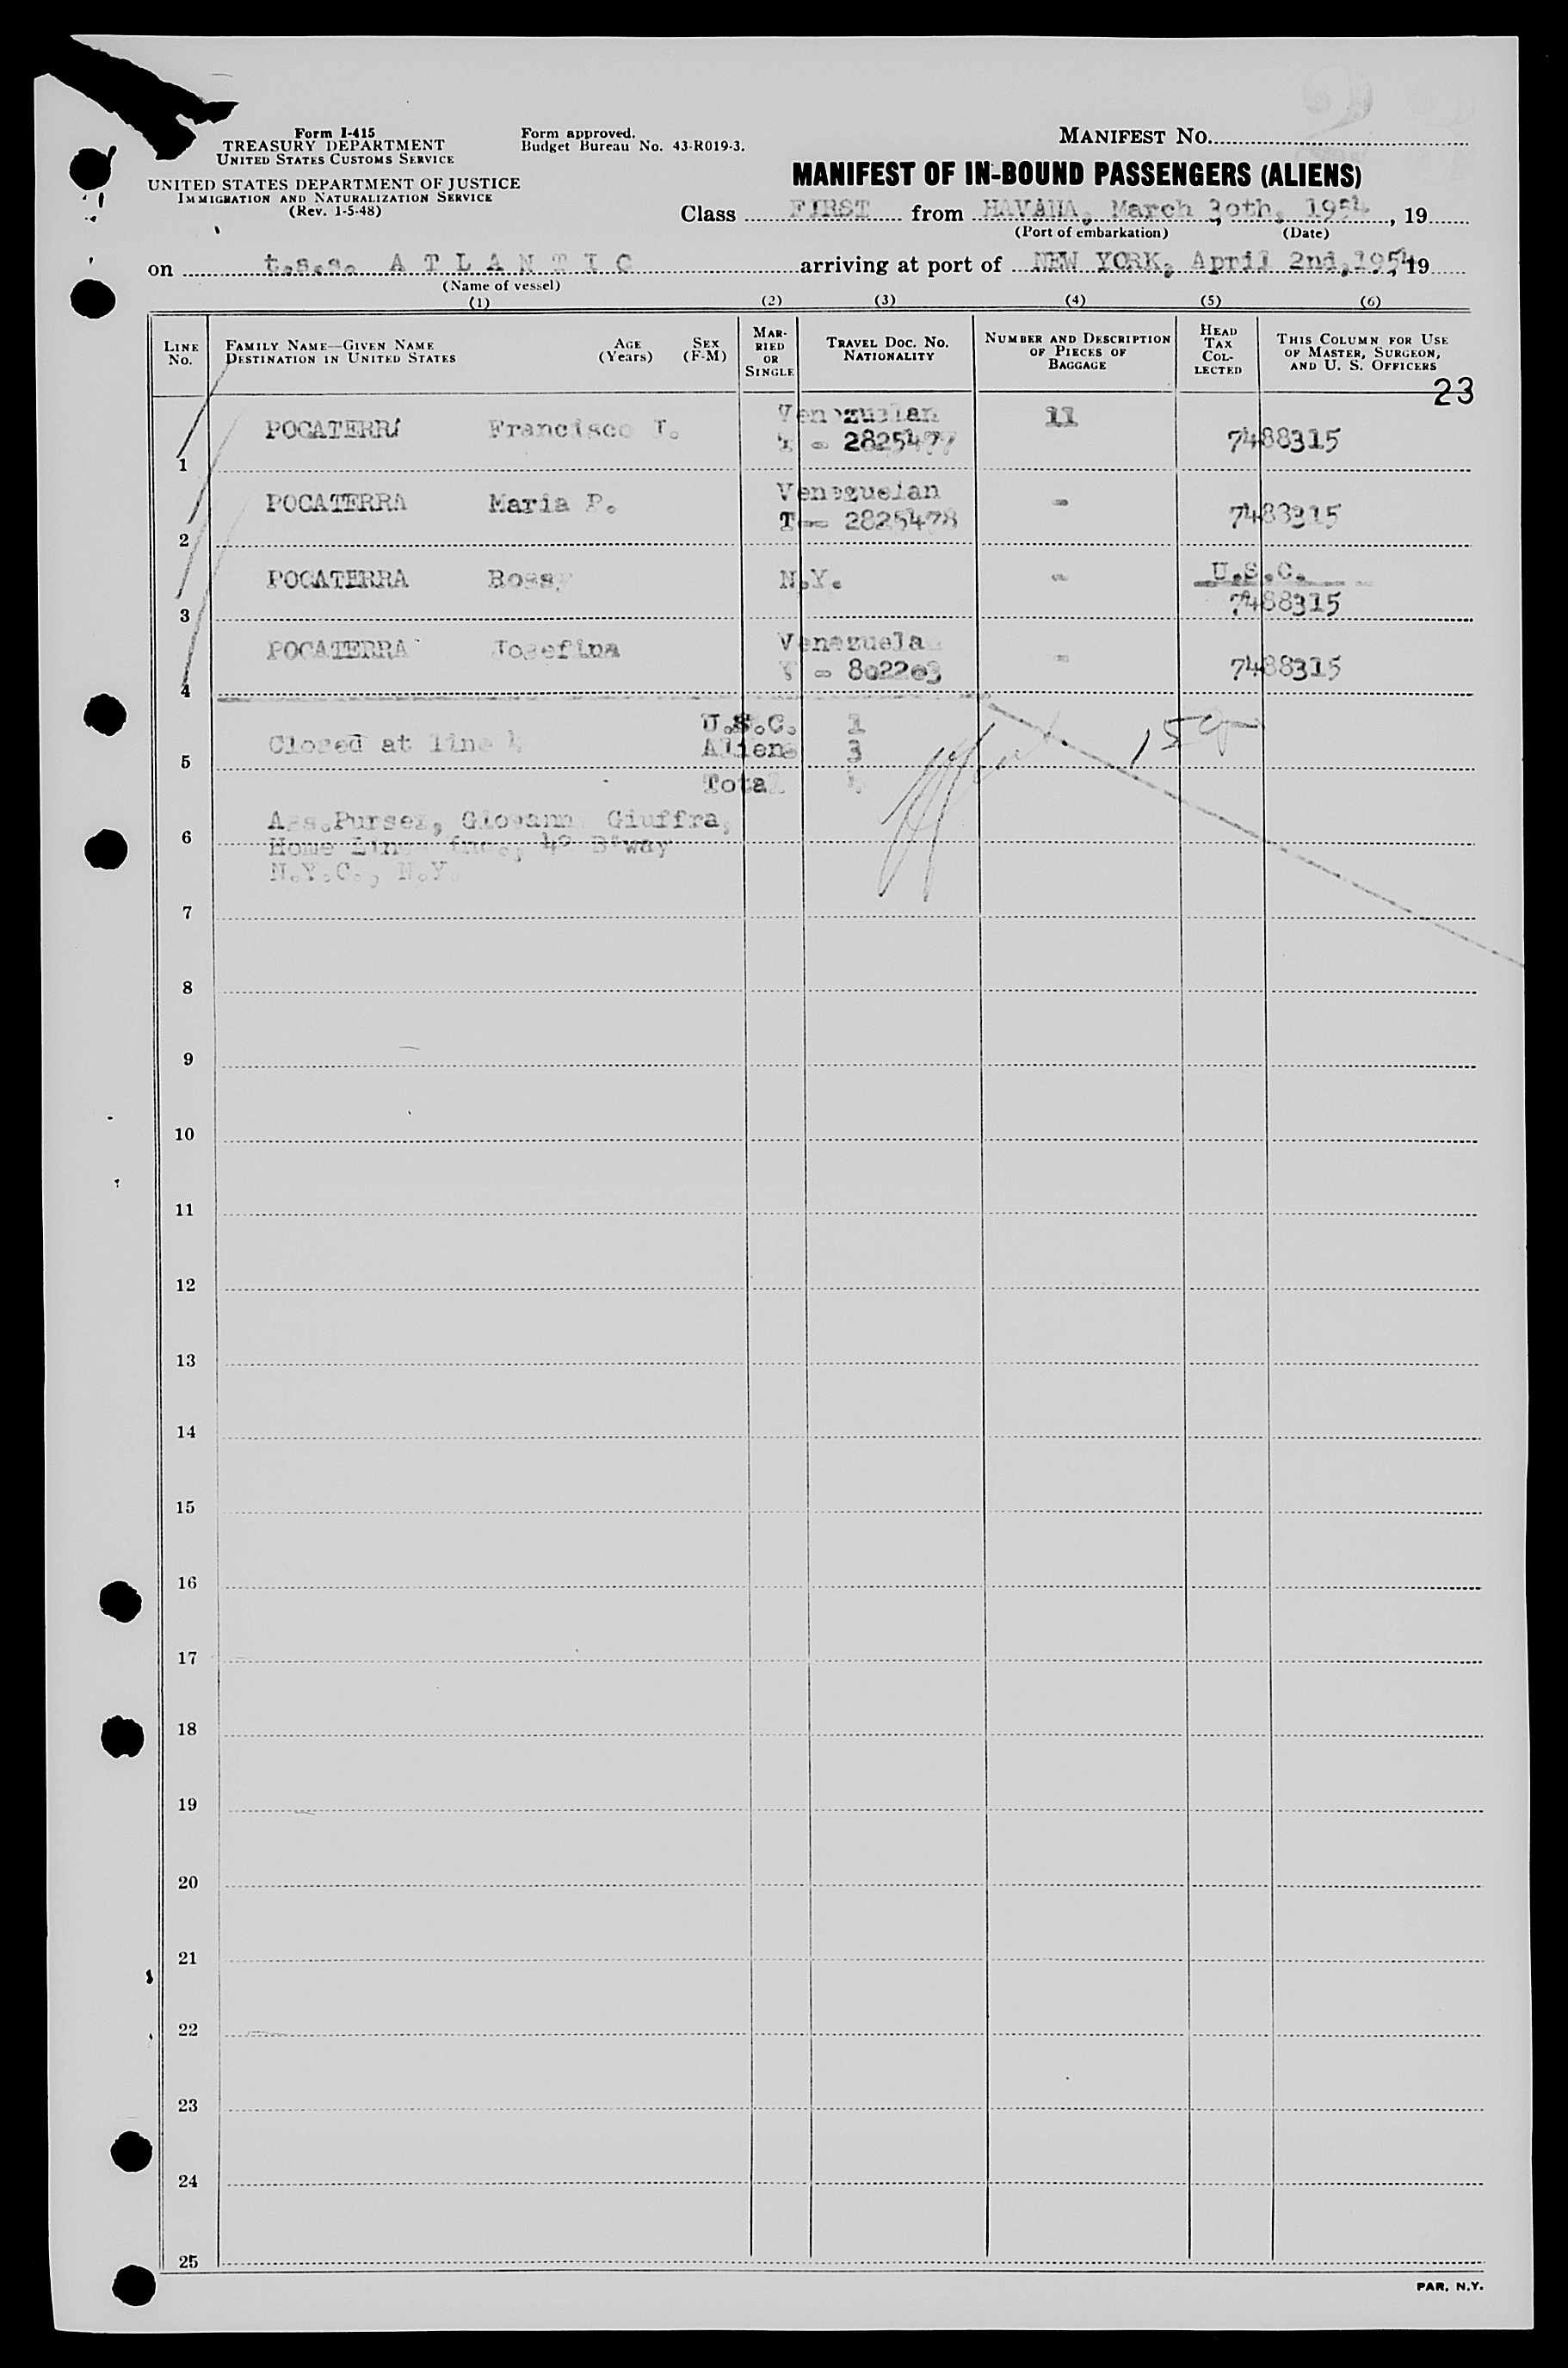 Form I-415
TREASURY DEPARTMENT
UNITED STATES CUSTOMS SERVICE
UNITED STATES DEPARTMENT OF JUSTICE
IMMIGRATION AND NATURALIZATION SERVICE
(Rev. 1-5-48)
Form approved.
Budget Bureau No. 43-R019-3.
MANIFEST NO.
MANIFEST OF IN-BOUND PASSENGERS (ALIENS)
Class FIRST from HAVANA, March 30th, 1954, 19
(Port of embarkation) (Date)
on t.s.s. A T L A N T I C arriving at port of NEW YORK, April 2nd, 1954 19
(Name of vessel)
(1) (2) (3) (4) (5) (6)
LINE No. FAMILY NAME—GIVEN NAME DESTINATION IN UNITED STATES AGE (Years) SEX (F-M) MARRIED OR SINGLE TRAVEL DOC. NO. NATIONALITY NUMBER AND DESCRIPTION OF PIECES OF BAGGAGE HEAD TAX COLLECTED THIS COLUMN FOR USE OF MASTER, SURGEON, AND U. S. OFFICERS
23
1 POCATERRA Francisco J. Venezuelan 11
- 2825477 7488315
2 POCATERRA Maria P. Venezuelan -
T - 2825478 7488315
3 POCATERRA N.Y. - U.S.C.
7488315
4 POCATERRA Josefina Venezuela
- 802203 - 7488315
U.S.C. 1
5 Closed at line 4 Aliens 3
Total 4
6 Ass.Purser, Giovanni Giuffra,
Home Lines Inc., B'way
N.Y.C., N.Y.
7
8
9
10
11
12
13
14
15
16
17
18
19
20
21
22
23
24
25
PAR, N.Y.